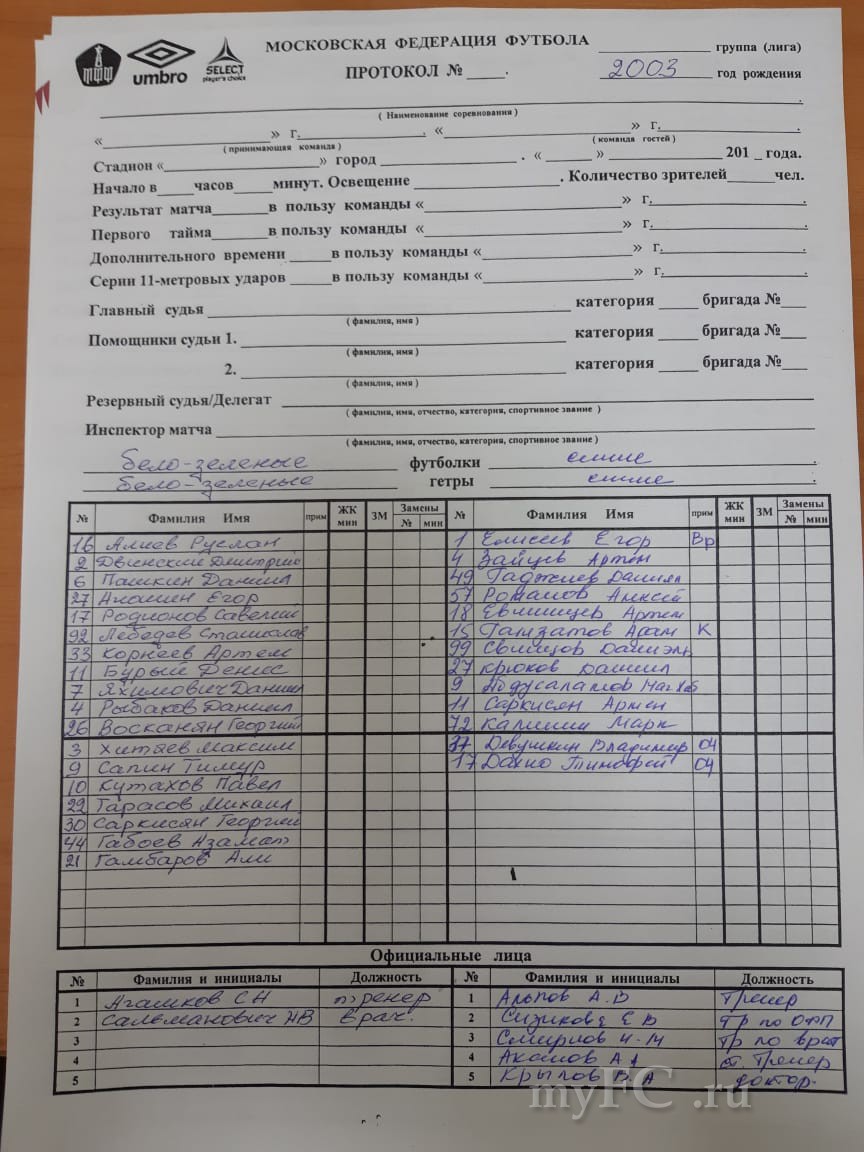 МФФ umbro SELECT player's choice
МОСКОВСКАЯ ФЕДЕРАЦИЯ ФУТБОЛА группа (лига)
ПРОТОКОЛ № . 2003 год рождения
( Наименование соревнования )
« » г. , « » г.
( принимающая команда ) ( команда гостей )
Стадион « » город . « » 201 года.
Начало в часов минут. Освещение . Количество зрителей чел.
Результат матча в пользу команды « » г. .
Первого тайма в пользу команды « » г. .
Дополнительного времени в пользу команды « » г. .
Серии 11-метровых ударов в пользу команды « » г. .
Главный судья категория бригада №
( фамилия, имя )
Помощники судьи 1. категория бригада №
( фамилия, имя )
2. категория бригада №
( фамилия, имя )
Резервный судья/Делегат
( фамилия, имя, отчество, категория, спортивное звание )
Инспектор матча
( фамилия, имя, отчество, категория, спортивное звание )
бело-зеленые футболки синие
бело-зеленые гетры синие .
№ Фамилия Имя прим ЖК мин ЗМ Замены № мин № Фамилия Имя прим ЖК мин ЗМ Замены № мин
16 Алиев Руслан 1 Елисеев Егор Вр
2 Двинский Дмитрий 4 Зайцев Артем
6 Пашкин Даниил 49 Гаджиев Даниял
27 Егор 57 Романов Алексей
17 Родионов Савелий 18 Артем
92 Лебедев Станислав 15 Гамзатов К
33 Корнеев Артем 99 Свинцов Даниэль
11 Бурый Денис 27 Крюков Даниил
7 Яхимович Даниил 9 Абдусаламов
4 Рыбаков Даниил 11 Саркисян Армен
26 Восканян Георгий 72 Калинин Марк
3 Хитяев Максим 37 Девушкин Владимир 04
9 Сапин Тимур 17 Данио Тимофей 04
10 Кутахов Павел
22 Тарасов Михаил
30 Саркисян Георгий
44 Габоев Азамат
21 Гамбаров Али
Официальные лица
№ Фамилия и инициалы Должность № Фамилия и инициалы Должность
1 Агашков С Н тренер 1 Альпов А.В Тренер
2 Сальманович НВ врач. 2 Е В Тр по ОФП
3 3 Смирнов И.М Тр по врат
4 4 Акаимов А А ст. Тренер
5 5 Крылов В.А доктор.
myFC.ru